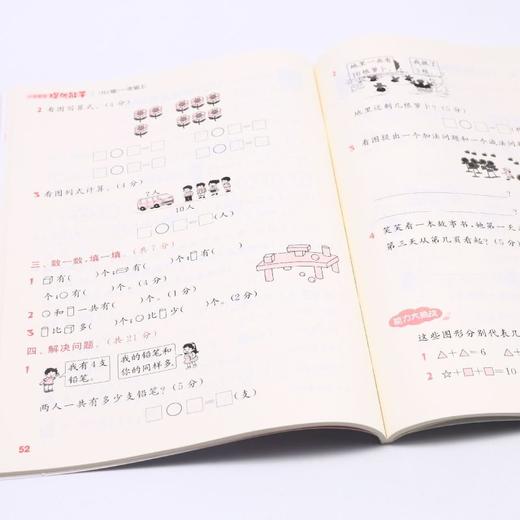 提优能手
2 看图写算式。(4分)
3 看图列式计算。(4分)
?人
10人
□○□=□(人)
三、数一数,填一填。(共7分)
1 有( )个 有( )个 有( )
个,有( )个。(4分)
2 和 一共有( )个。(1分)
3 比 多( )个,比 少( )个。(2分)
四、解决问题。(共21分)
1 我有4支铅笔。
我的铅笔和你的同样多。
两人一共有多少支铅笔?(5分)
□○□=□(支)
52
2 地里一共有10根萝卜。
我拔了
地里还剩几根萝卜?(5分)
3 看图提出一个加法问题和一个减法问
4 笑笑看一本故事书,她第一天
第三天从第几页看起?(5分)
能力大挑战
这些图形分别代表几
1 △+△=6 △
2 ☆+□+□=10